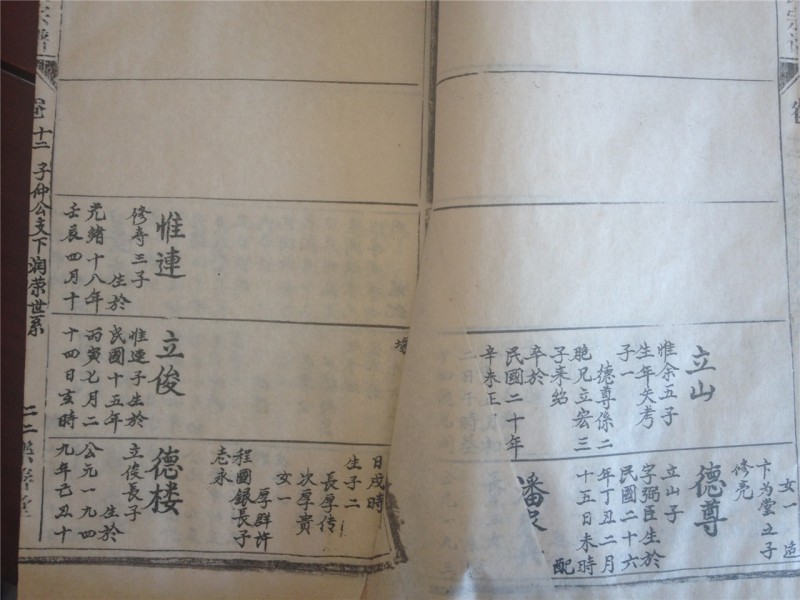 卷十二 子仲公支下润荣世系
女一 造
卞为堂五子
修亮
立山
惟余五子
生年失考
子一
德尊係二
胞兄立宏三
子来绍
卒於
民國二十年
辛未正
德尊
立山子
字弼臣生於
民國二十六
年丁丑二月
十五日未時
配
潘
惟連
修寿三子
生於
光緒十八年
壬辰四月十
立俊
惟連子生於
民國十五年
丙寅七月二
十四日亥時
日戌時
生子二
長厚传
次厚貴
女一
厚群许
程國銀長子
志永
德楼
立俊長子
生於
公元一九四
九年己丑十